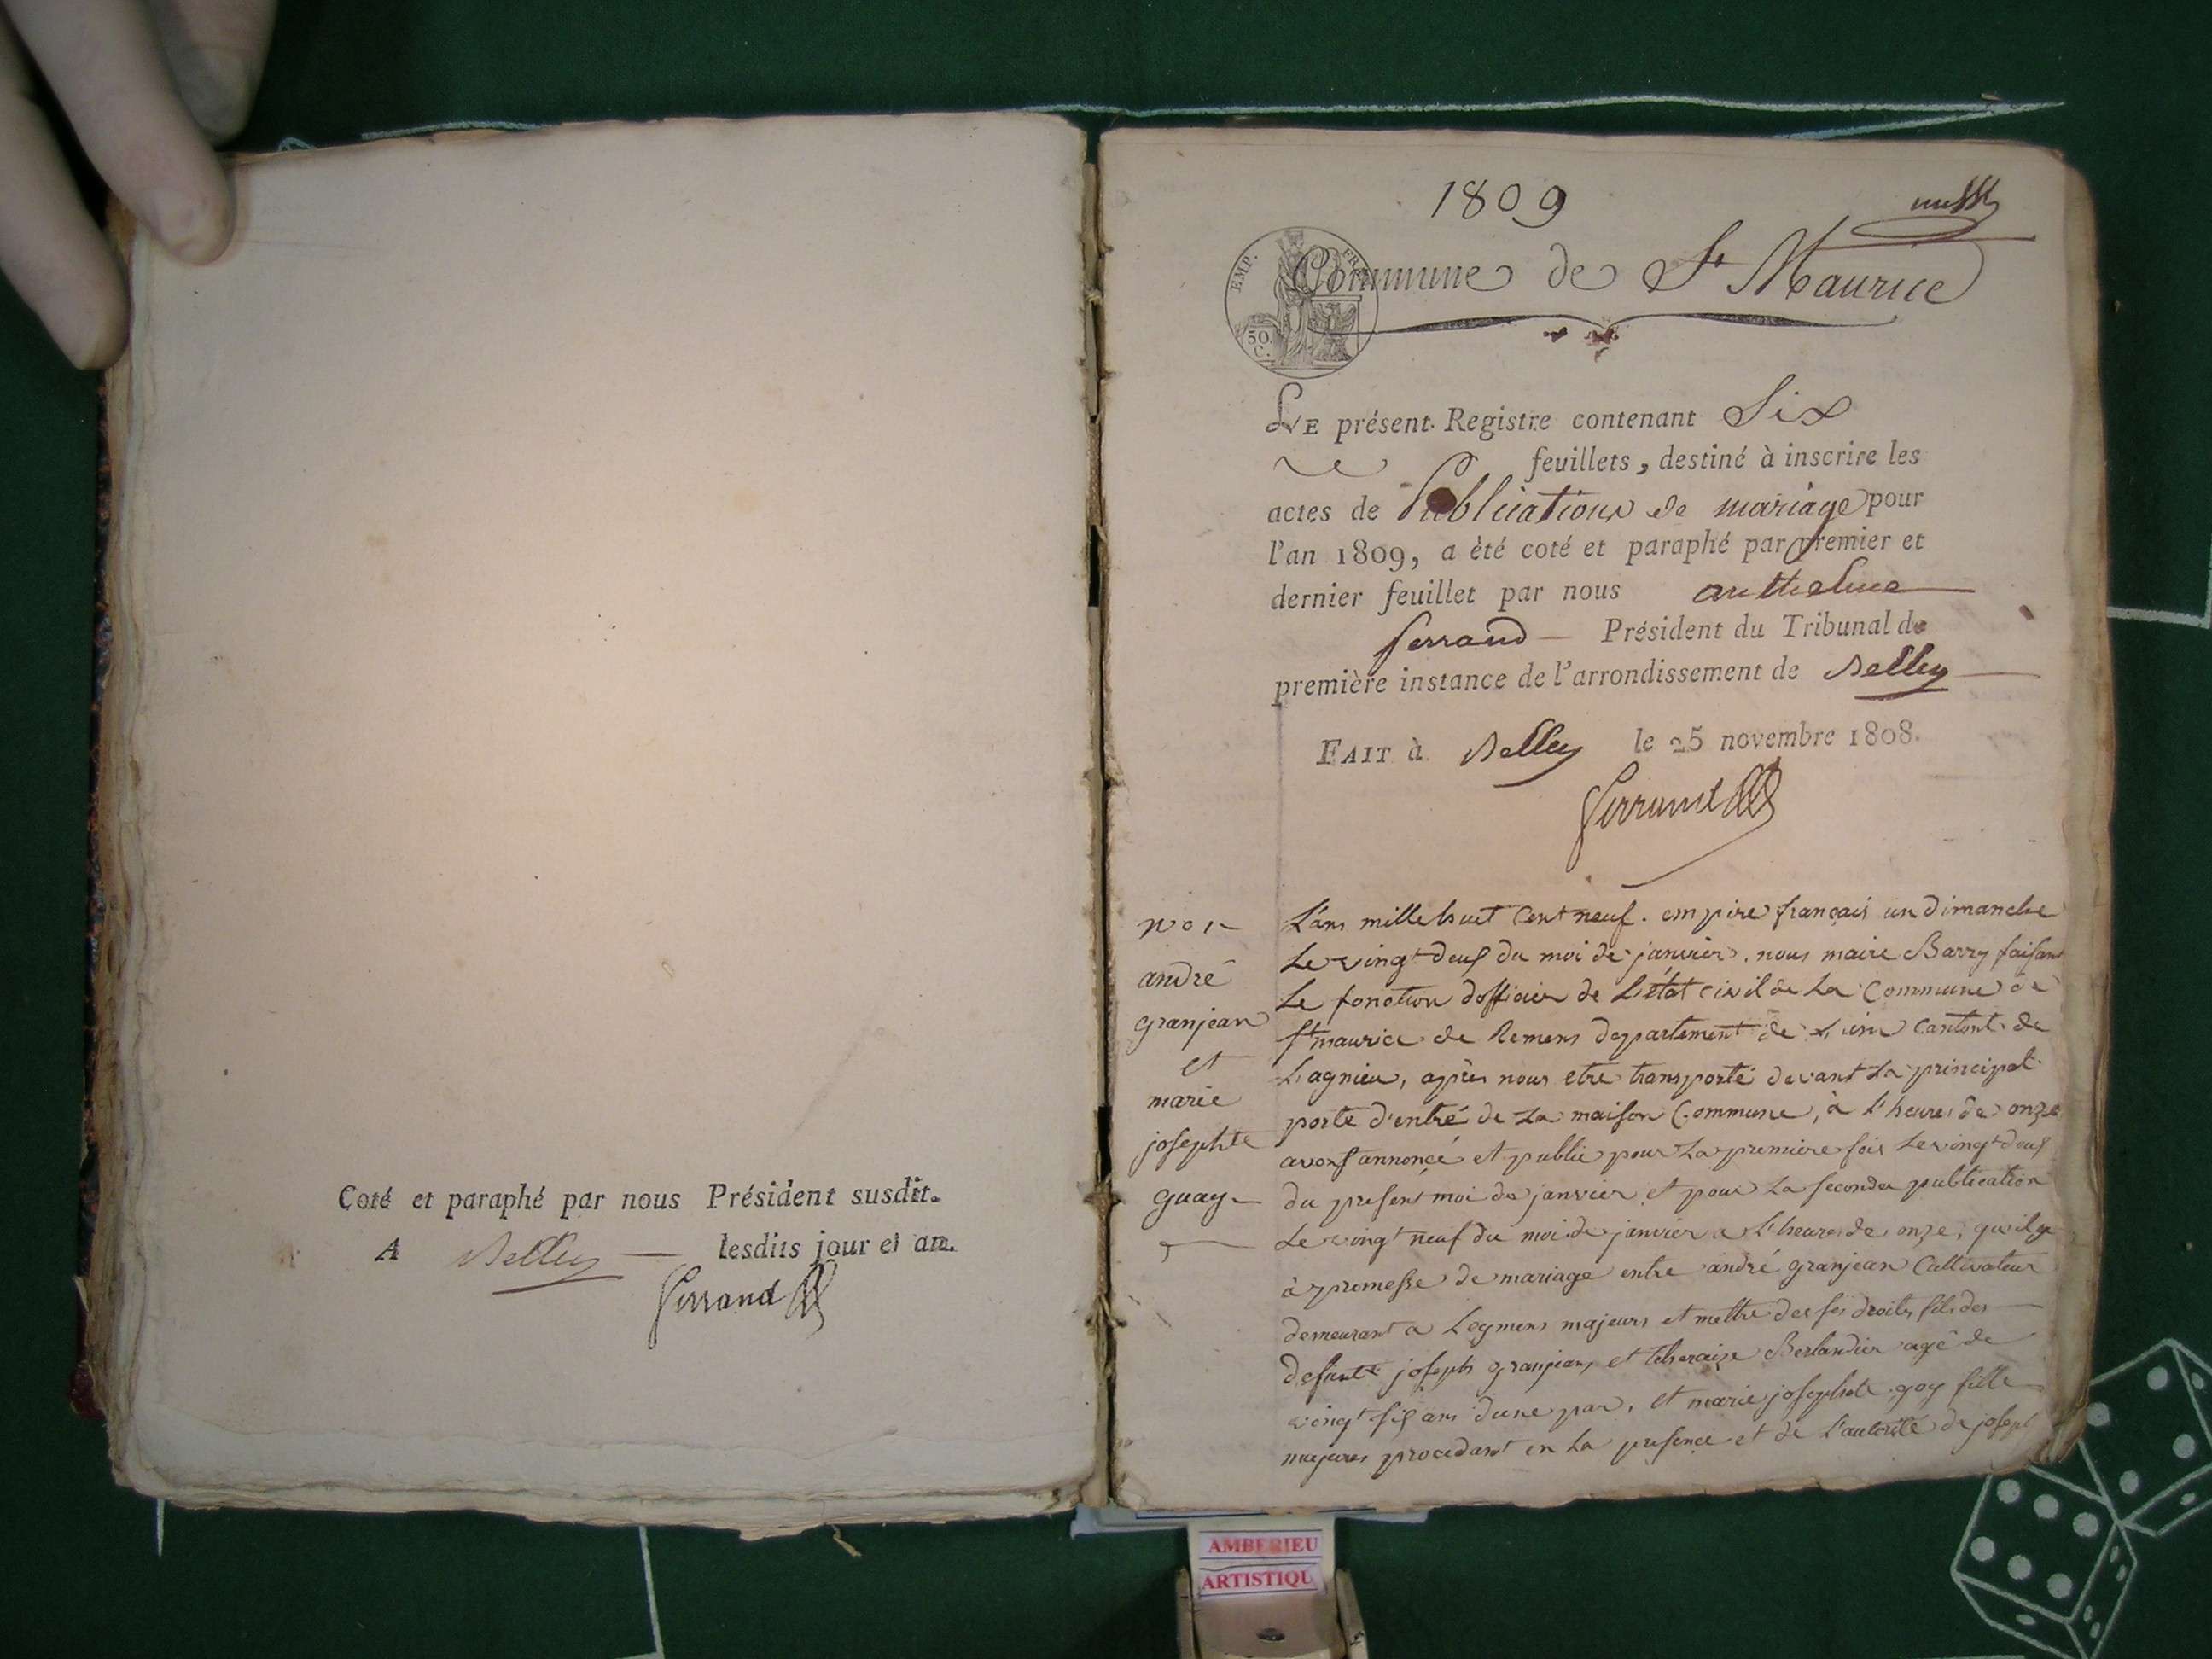 Coté et paraphé par nous Président susdit.
A Belley lesdits jour et an.
Ferrand
1809
EMP. FRA
50
C.
Commune de St Maurice
LE présent Registre contenant Six
feuillets, destiné à inscrire les
actes de Publications de mariage pour
l'an 1809, a èté coté et paraphé par premier et
dernier feuillet par nous anthelme
ferrand Président du Tribunal de
première instance de l'arrondissement de Belley
FAIT à Belley le 25 novembre 1808.
Ferrand
no 1
andré
granjean
et
marie
josephte
guay
L'ans mille huit Cent neuf. empire français un dimanche
Le vingt deux du moi de janvier, nous maire Barry faisant
Le fonction d'officier de L'état civil de La Commune de
st maurice de Remens departement de L'ain Canton de
Lagnieu, après nous etre transporté devant La principal
porte d'entré de La maison Commune, à l'heure de onze
avons annoncé et publié pour La premiere fois Le vingt deux
du present moi de janvier et pour La seconde publication
Le vingt neuf du moi de janvier a l'heure de onze, qu'il y
à promesse de mariage entre andré granjean Cultivateur
demeurant a Leymens majeurs et mettre des ses droits, fils des
defunts joseph granjean, et theraise Berlandier agé de
vingt six ans dune par, et marie josephte goy fille
majeures procedant en La presence et de l'autorité de joseph
AMBERIEU
ARTISTIQU